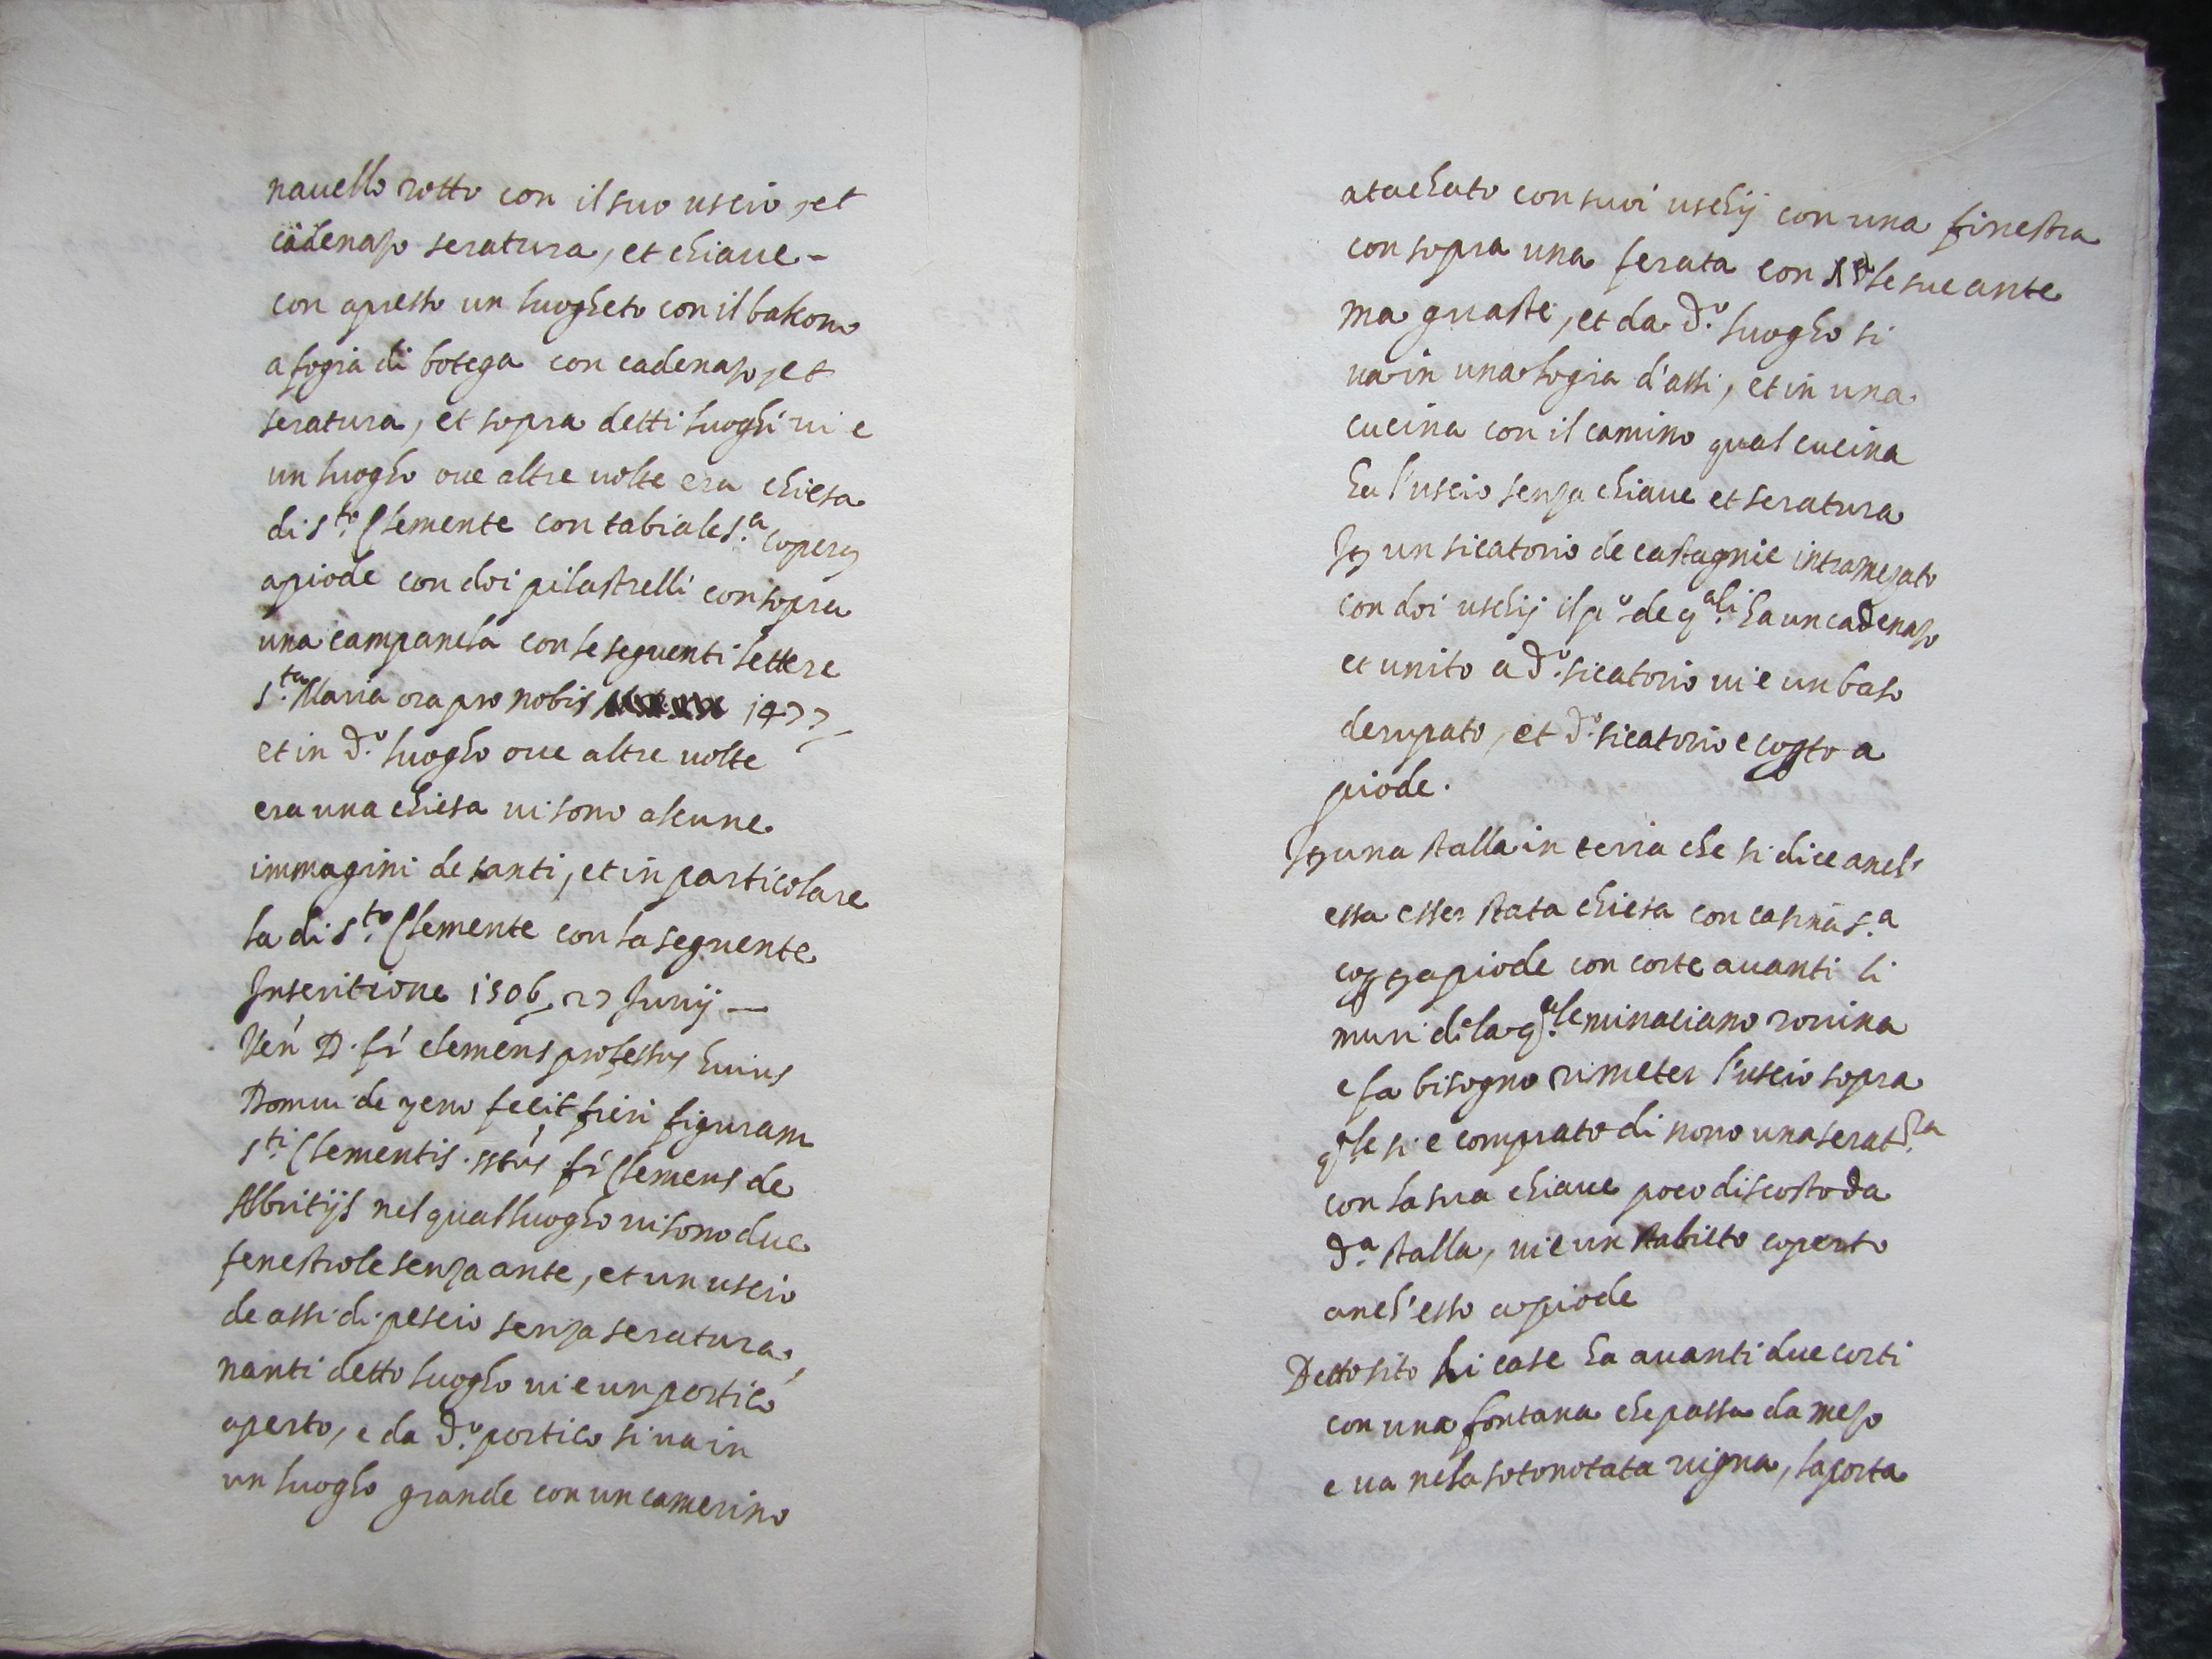 nauello rotto con il suo uscio, et
cadenazo seratura, et chiaue -
con apresso un luogheto con il balcono
a fogia di botega con cadenazo, et
seratura, et sopra detti luoghi ui e
un luogho oue altre uolte era chiesa
di s.to Clemente con tabiale s.a coperg
apiode con doi pilastrelli con sopra
una campanela con le seguenti lettere
s.ta Maria ora pro nobis 1477
et in d.o luogho oue altre uolte
era una chiesa ui sono alcune
immagini de santi, et in particolare
la di s.to Clemente con la seguente
Inscritione 1506, 27 Junij —
Ven D. fr clemens professus huius
Domui de zeno fecit fieri figuram
s.ti Clementis. fr Clemens de
nel qual luogho ui sono due
fenestrole senza ante, et un uscio
de assi di pescio senza seratura,
nanti detto luogho ui e un portico
aperto, e da d.o portico si ua in
un luogho grande con un camerino
atachato con suoi uschij con una finestra
con sopra una ferata con le sue ante
ma guaste, et da d.o luogho si
ua in una logia d'assi, et in una
cucina con il camino qual cucina
ha l'uscio senza chiaue et seratura
Itt un sicatorio de castagnie intramezato
con doi uschij il p.o de q.ali ha un cadenazo
et unito a d.o sicatorio ui e un baso
derupato, et d.o sicatorio e cop.to a
piode.
Itt una stalla in terra che si dice anch'
essa esser stata chiesa con casina s.a
apiode con corte auanti li
muri dela q.ale minaciano rouina
e fa bisogno rimeter l'uscio sopra
q.ale si e comprato di nouo una serat.ra
con la sua chiaue poco discosto da
d.a stalla, ui e un stabieto coperto
anch'esso a piode
Detto sito di case ha auanti due corti
con una fontana che passa da mezo
e ua nela sotonotata uigna, la porta